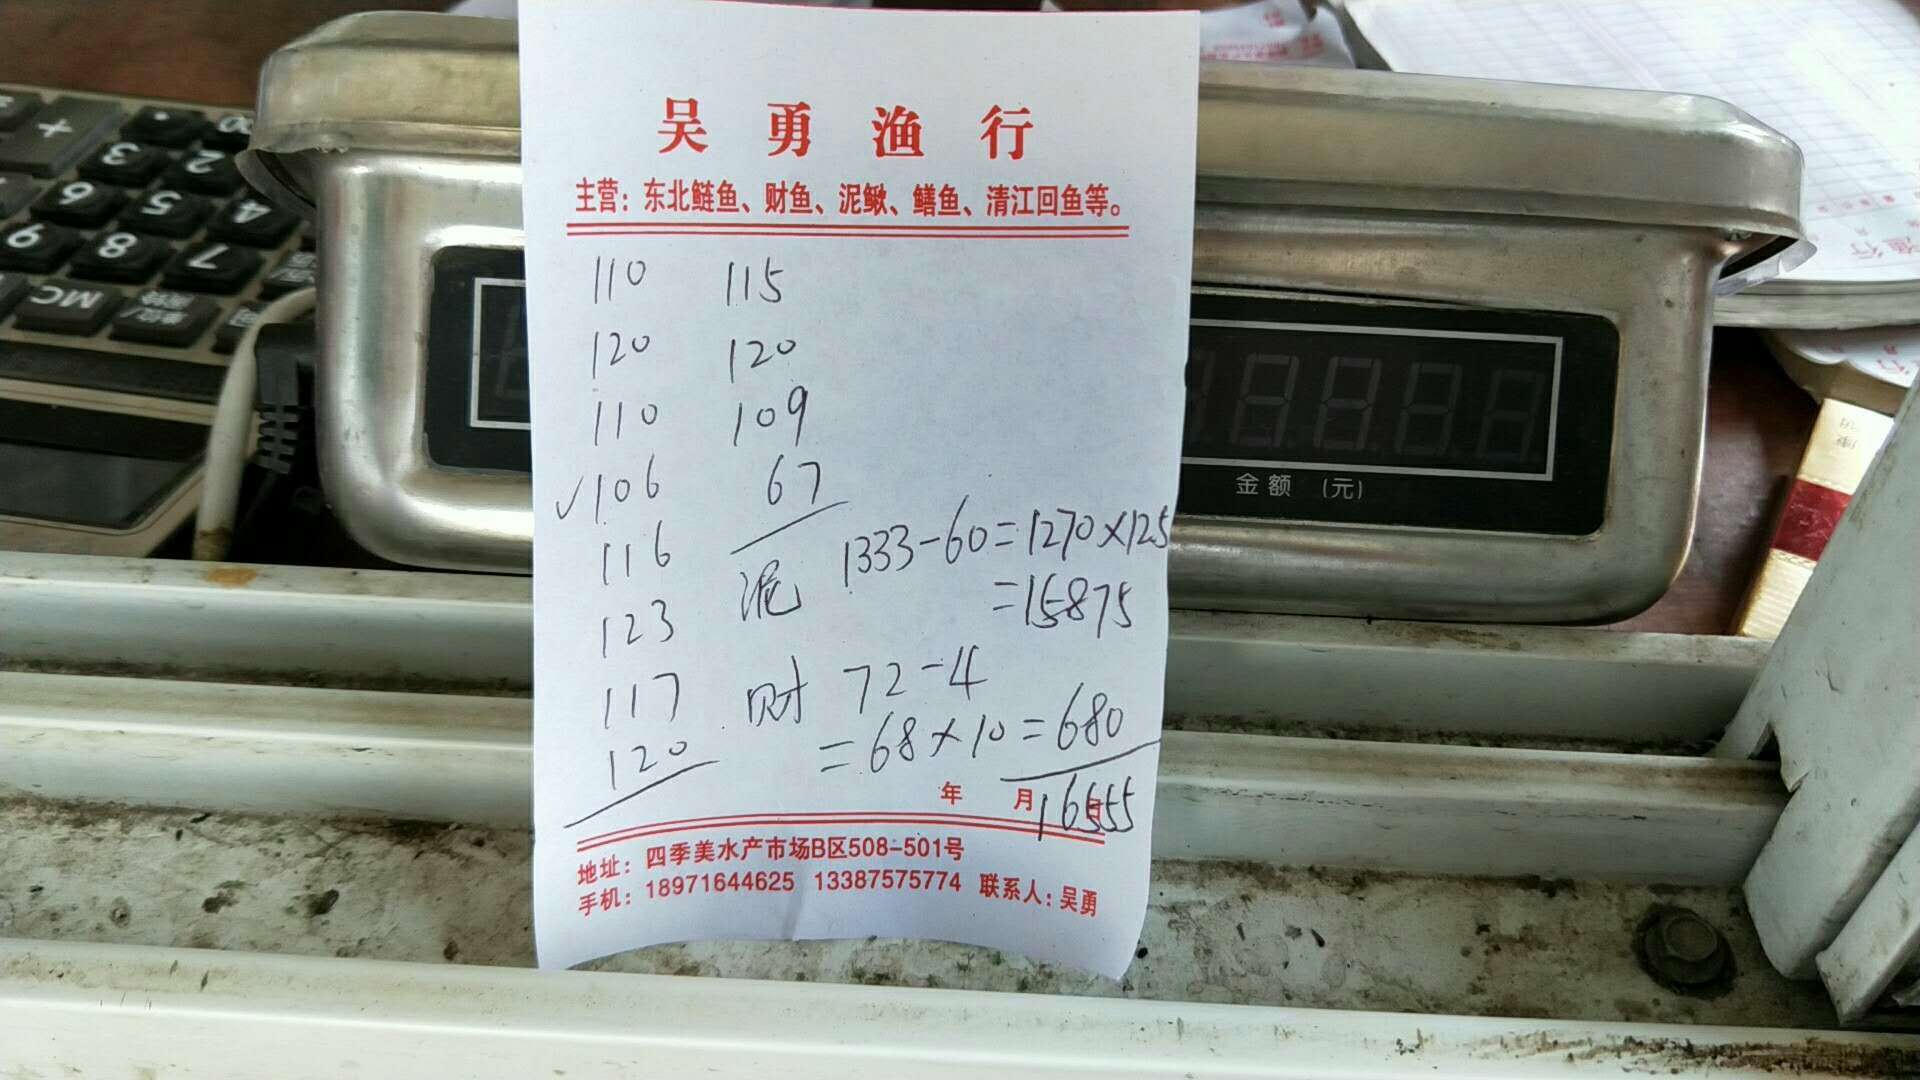 吴勇渔行
主营：东北鲢鱼、财鱼、泥鳅、鳝鱼、清江回鱼等。
110 115
120 120
110 109
✓106 67
116
123
117
120
泥 1333-60=1270×125
=15875
财 72-4
=68×10=680
16555
年 月 日
地址：四季美水产市场B区508-501号
手机：18971644625 13387575774 联系人：吴勇
金额 (元)
+
3 2
6 5 4
9 8 7
MC
渔行